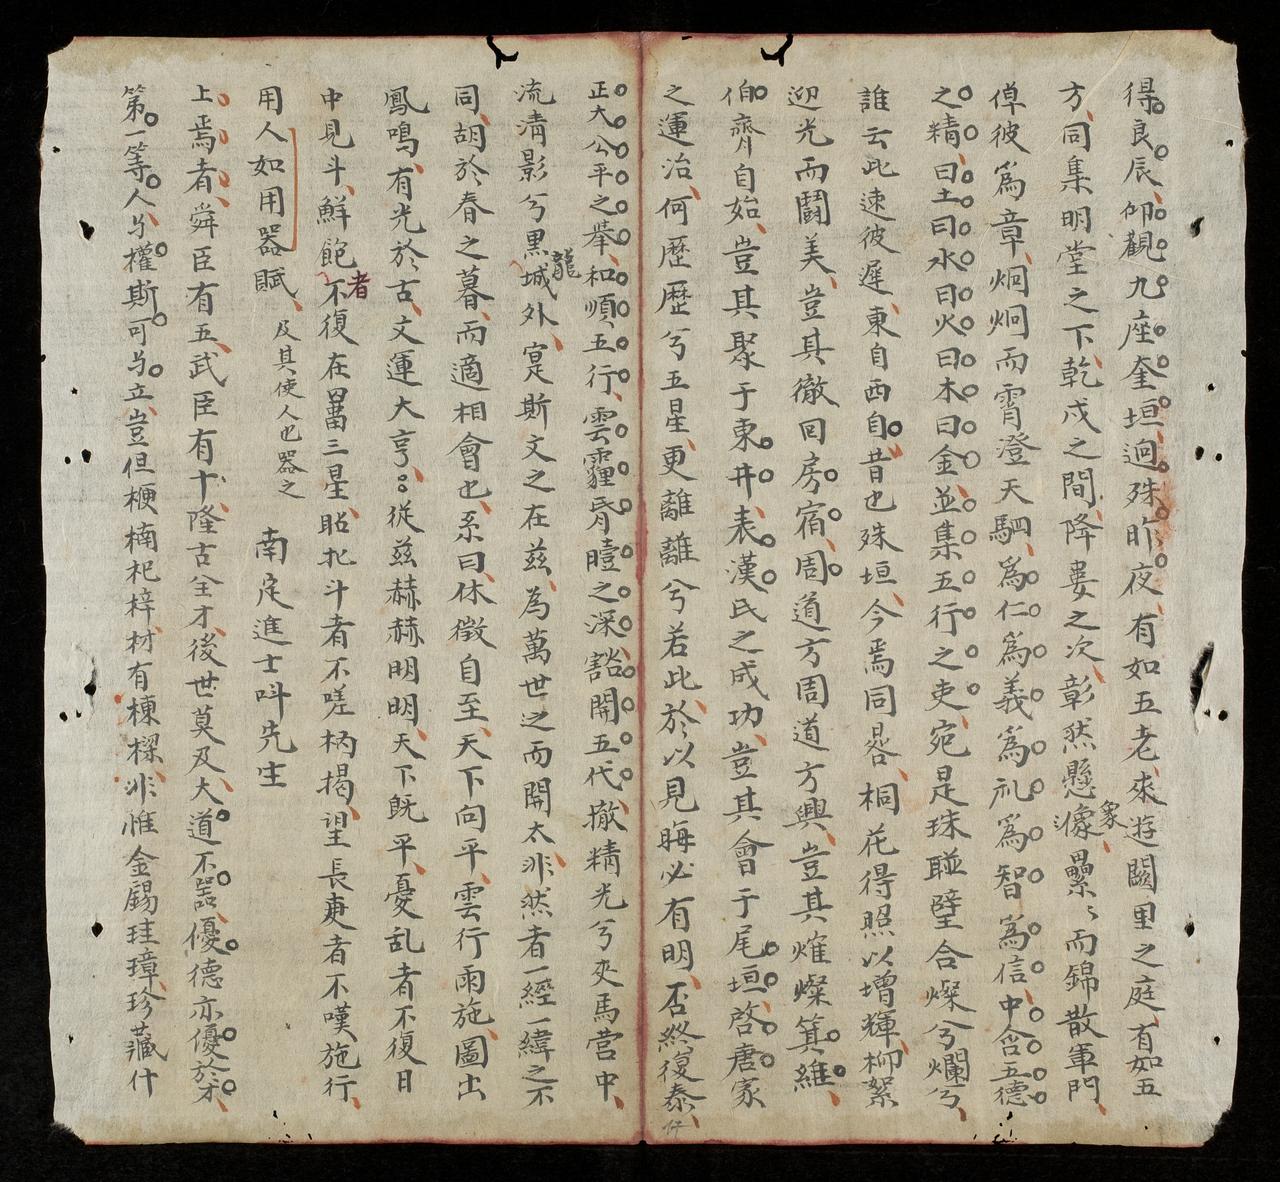 得良辰仰觀九座奎垣迥殊昨夜有如五老來遊闕里之庭有如五
方同集明堂之下乾戌之間降婁之次彰然懸像象纍〻而錦散軍門
倬彼爲章炯炯而霄澄天駟爲仁爲義爲礼爲智爲信中含五德
之精曰土曰水曰火曰木曰金並集五行之吏宛是珠聯璧合燦兮爛兮
誰云此速彼遲東自西自昔也殊垣今焉同晷桐花得照以增輝柳絮
迎光而鬪美豈其徹回房宿周道方周道方興豈其熣燦箕維
伯齊自始豈其聚于東井表漢氏之成功豈其會于尾垣啓唐家
之運治何歷歷兮五星更離離兮若此於以見晦必有明否終復泰
正大公平之舉和順五行雲霾昏曀之深豁開五代撤精光兮夾馬營中
流淸影兮黒城龍外寔斯文之在兹為萬世之而開太非然者一經一緯之不
同胡於春之暮而適相會也系曰休徵自至天下向平雲行雨施圖出
鳳鳴有光於古文運大亨従兹赫赫明明天下既平憂乱者不復日
中見斗鮮飽者不復在罶三星眙北斗者不嗟柄揭望長庚者不嘆施行
用人如用器賦 及其使人也器之 南定進士呌先生
上焉者舜臣有五武臣有十隆古全才後世莫及大道不噐優德亦優於才
第一等人与權斯可与立豈但梗楠杞梓材有棟樑非惟金錫珪璋珍藏什